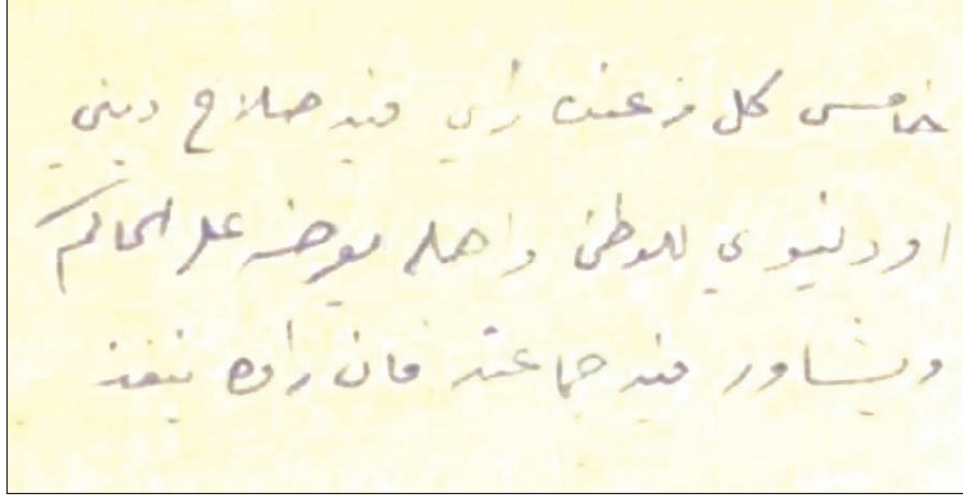 خامس كل من عنده راي فيه صلاح ديني
او دنيوي للوطن واهله يعرضه على الحاكم
ويشاور فيه جماعته فان راوه ينفذ